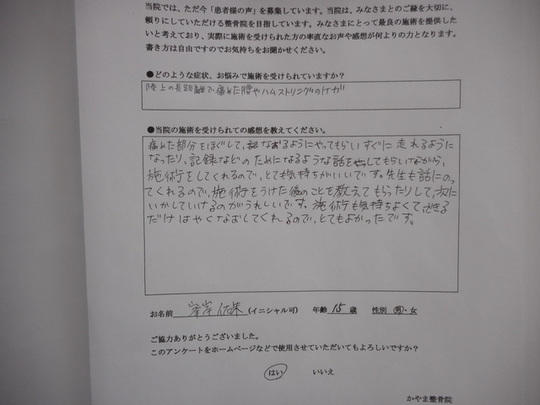 当院では、ただ今「患者様の声」を募集しています。当院は、みなさまとのご縁を大切に、
頼りにしていただける整骨院を目指しています。みなさまにとって最良の施術を提供した
いと考えており、実際に施術を受けられた方の率直なお声や感想が何よりの力となります。
書き方は自由ですのでお気持ちをお聞かせください。
●どのような症状、お悩みで施術を受けられていますか？
陸上の長距離で痛めた腰やハムストリングのけが
●当院の施術を受けられての感想を教えてください。
痛めた部分をほぐして、なおるようにやってもらいすぐに走れるように
なったり、記録などのためになるような話をしてもらいながら、
施術をしてくれるので、とても気持ちがいいです。先生も話にのっ
てくれるので、施術をうけた後のことを教えてもらったりして、次に
いかしていけるのがうれしいです。施術も気持ちよくて、できる
だけはやくなおしてくれるので、とてもよかったです。
お名前 (イニシャル可) 年齢 15 歳 性別 男・女
ご協力ありがとうございました。
このアンケートをホームページなどで使用させていただいてもよろしいですか？
はい いいえ
かやま整骨院